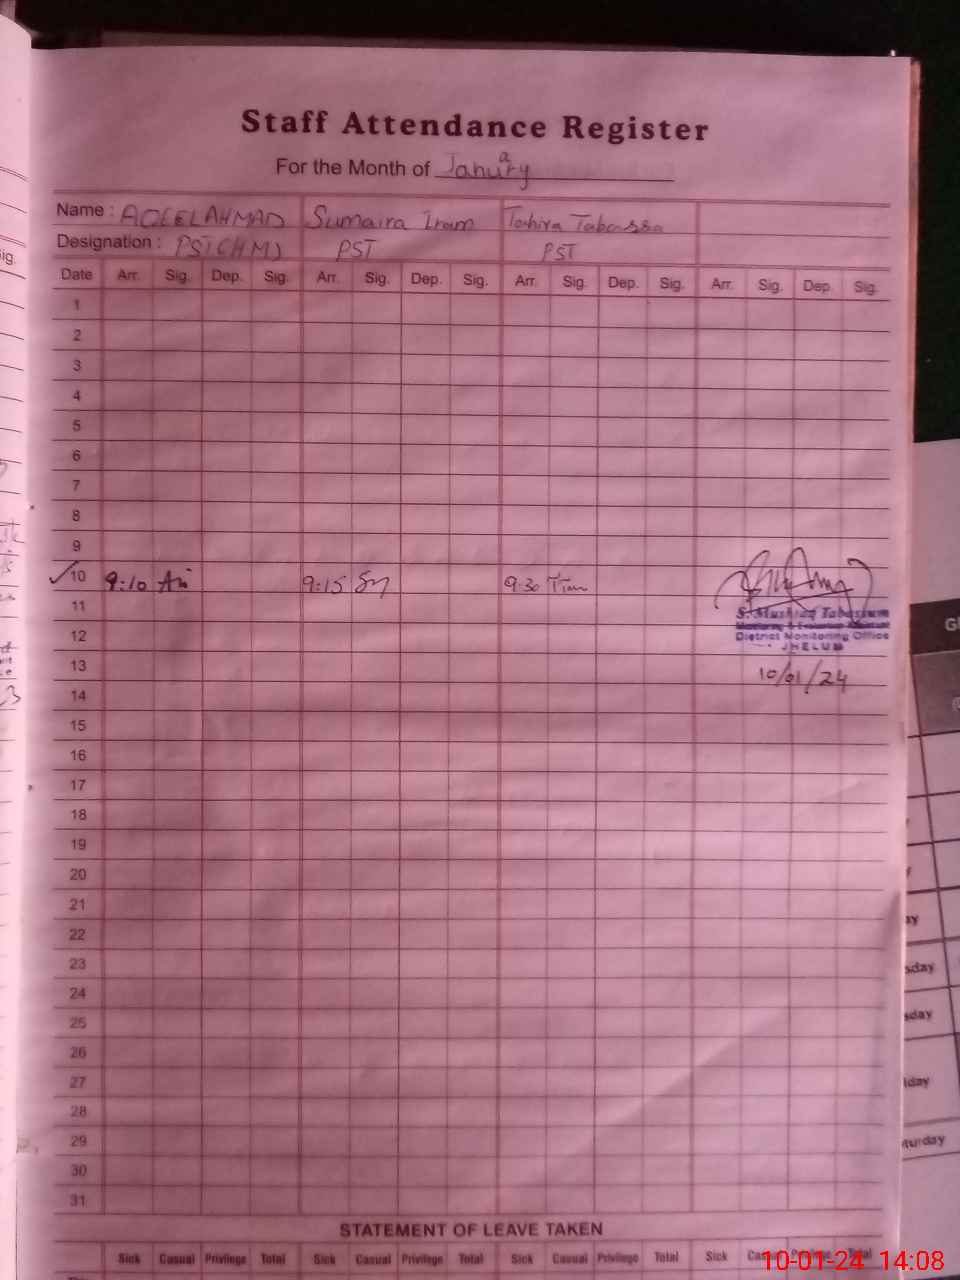 Staff Attendance Register
For the Month of January
Name : AQEEL AHMAD Sumaira Iram Tahira Tabassa
Designation : PST(HM) PST PST
Date Arr. Sig. Dep. Sig. Arr. Sig. Dep. Sig. Arr. Sig. Dep. Sig. Arr. Sig. Dep. Sig.
1
2
3
4
5
6
7
8
9
10 9:10 9:15 9:30
11
S. Mushtaq Tabassum
12
District Monitoring Office
JHELUM
13
10/01/24
14
15
16
17
18
19
20
21
22
23
24
25
26
27
28
29
30
31
STATEMENT OF LEAVE TAKEN
Sick Casual Privilege Total Sick Casual Privilege Total Sick Casual Privilege Total Sick Casual Privilege Total
10-01-24 14:08
ig.
sday
sday